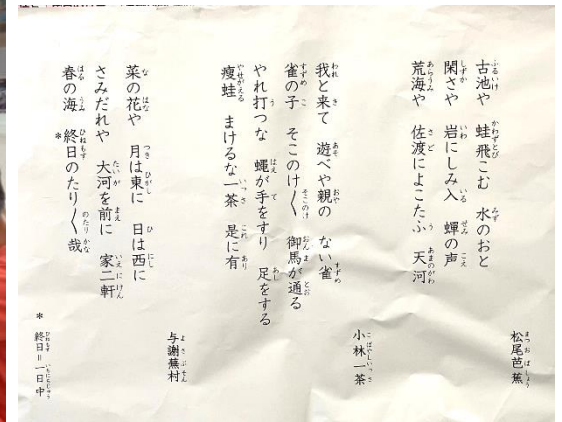 古池や 蛙飛こむ 水のおと
閑さや 岩にしみ入る 蟬の声
荒海や 佐渡によこたふ 天河
松尾芭蕉
我と来て 遊べや親の ない雀
雀の子 そこのけ〱 御馬が通る
やれ打つな 蠅が手をすり 足をする
痩蛙 まけるな一茶 是に有
小林一茶
菜の花や 月は東に 日は西に
さみだれや 大河を前に 家二軒
春の海 *終日のたり〱哉
与謝蕪村
*終日=一日中